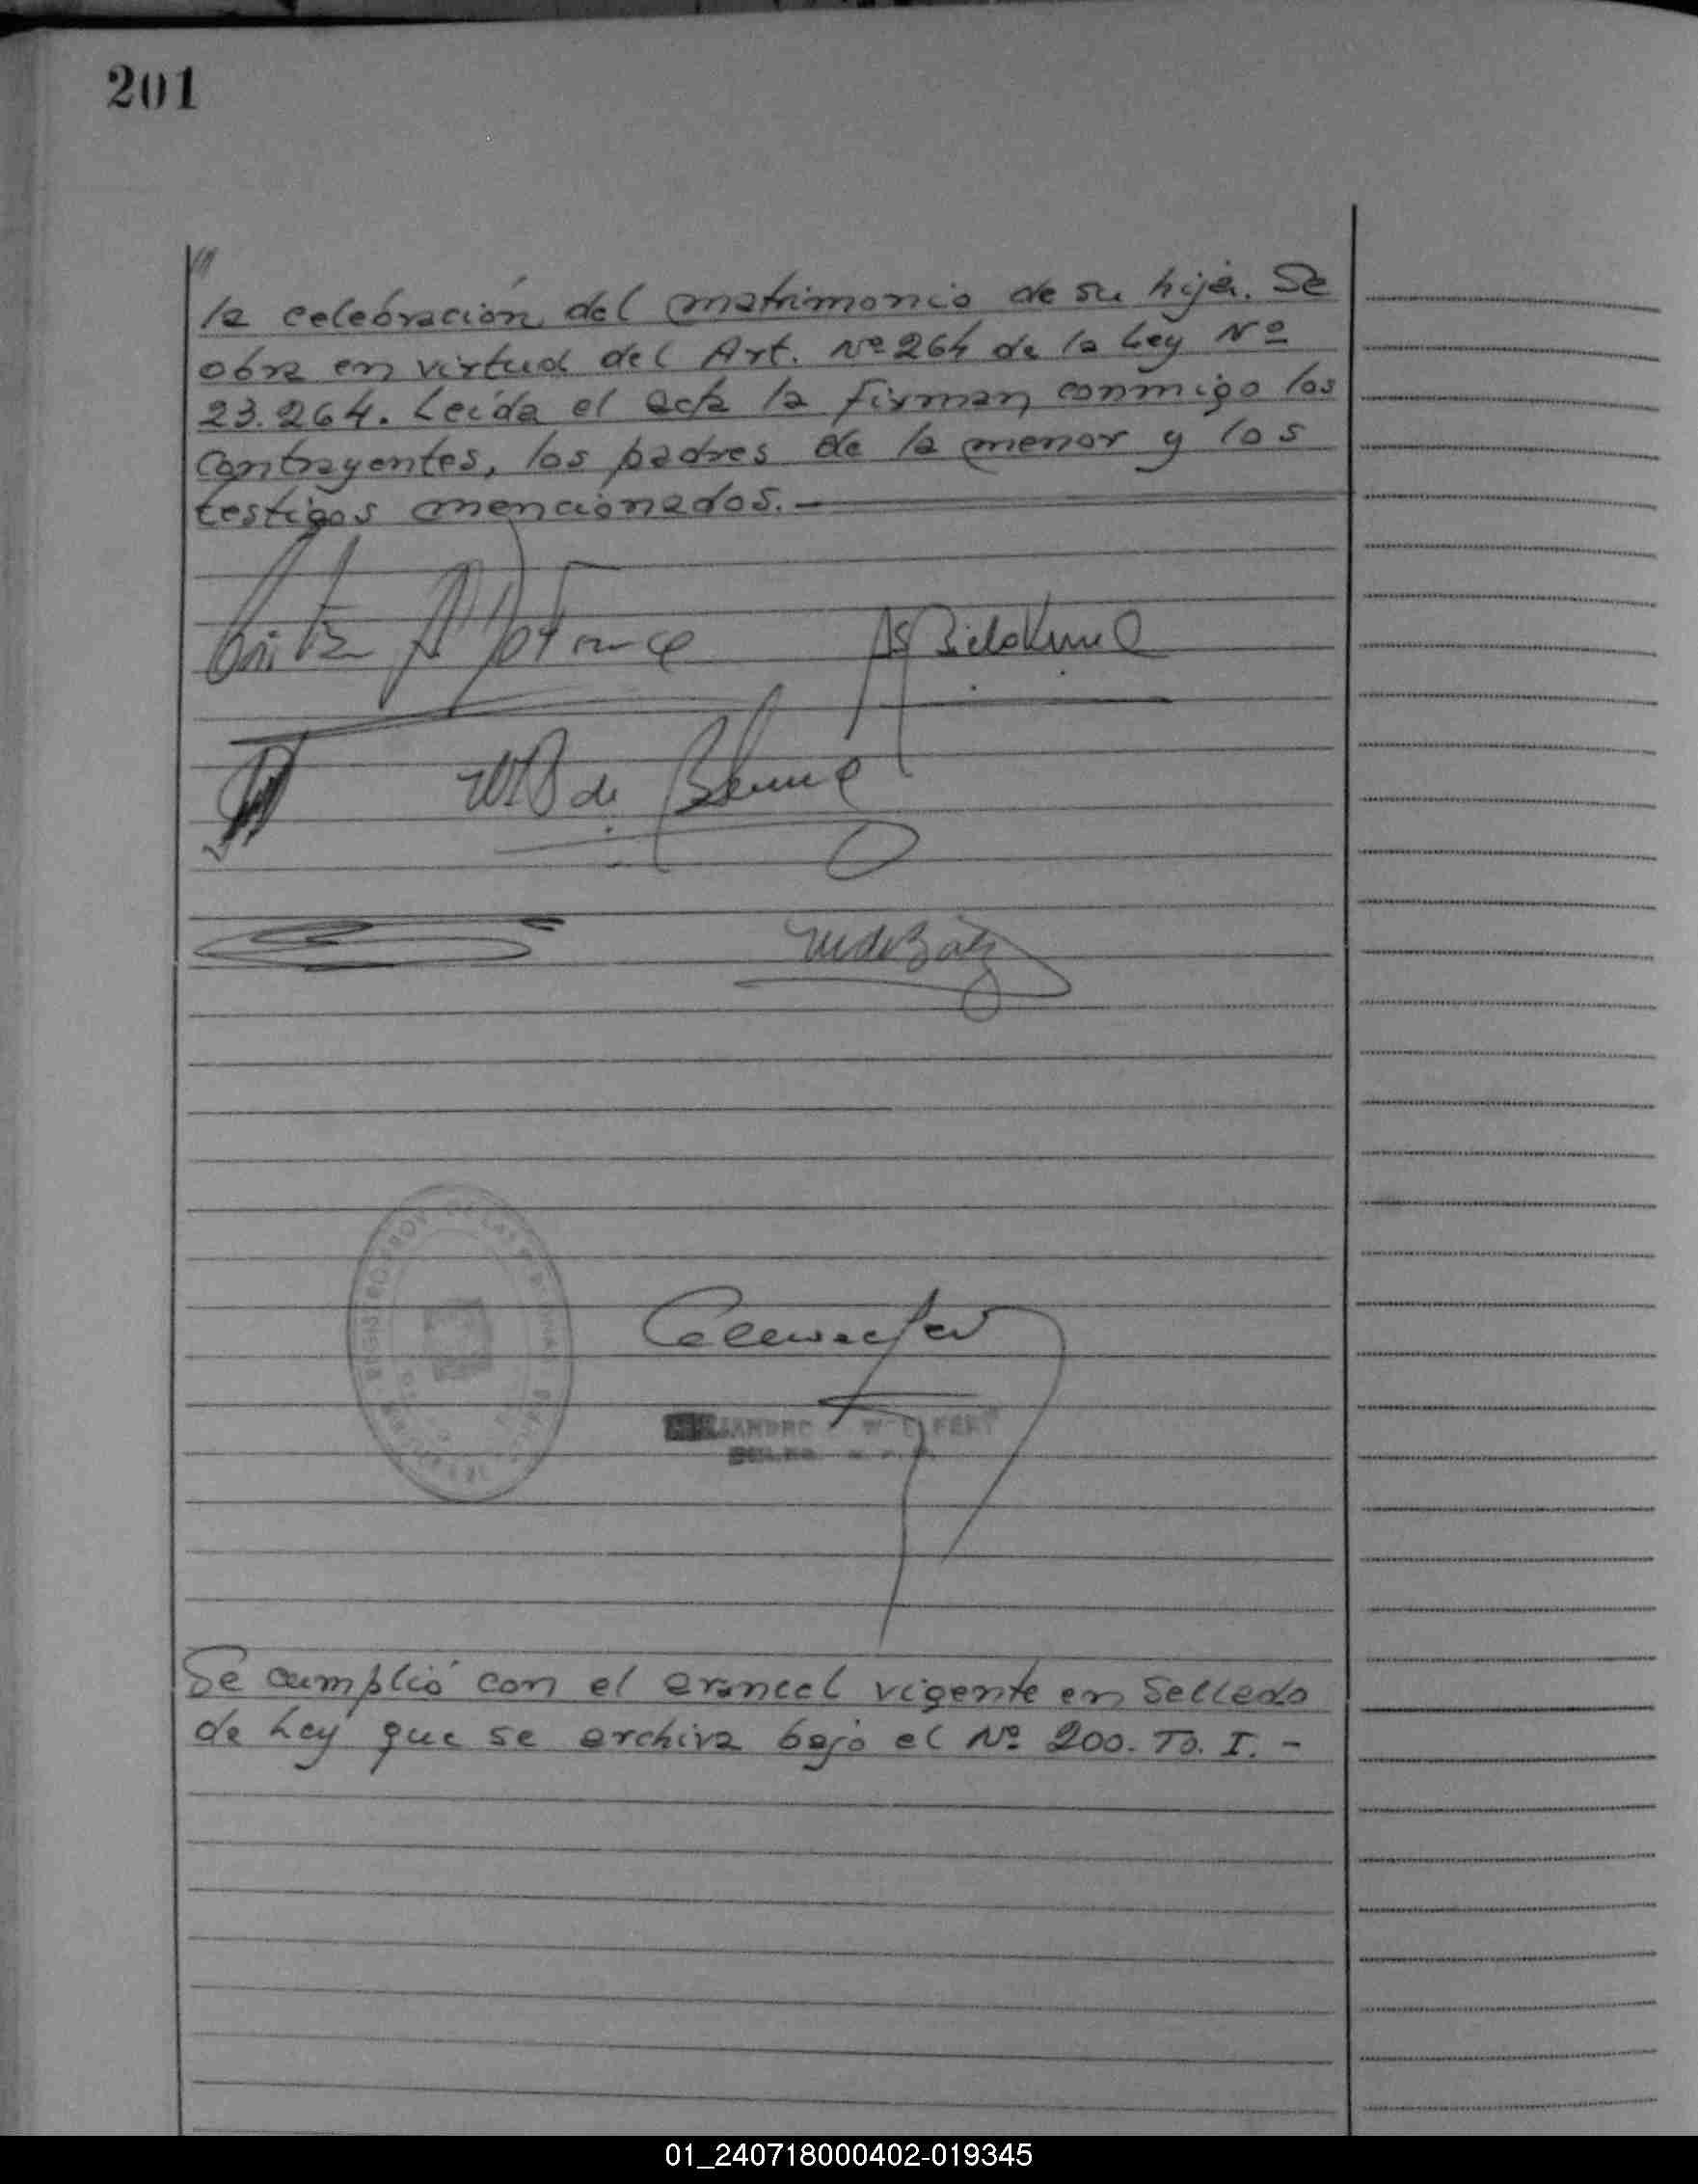 201
la celebración del matrimonio de su hija. Se
obra en virtud del Art. Nº 264 de la Ley Nº
23.264. Leída el acta la firman conmigo los
contrayentes, los padres de la menor y los
testigos mencionados. —
de
Se cumplió con el arancel vigente en Sellado
de Ley que se archiva bajo el Nº 200. To. I. -
01_240718000402-019345